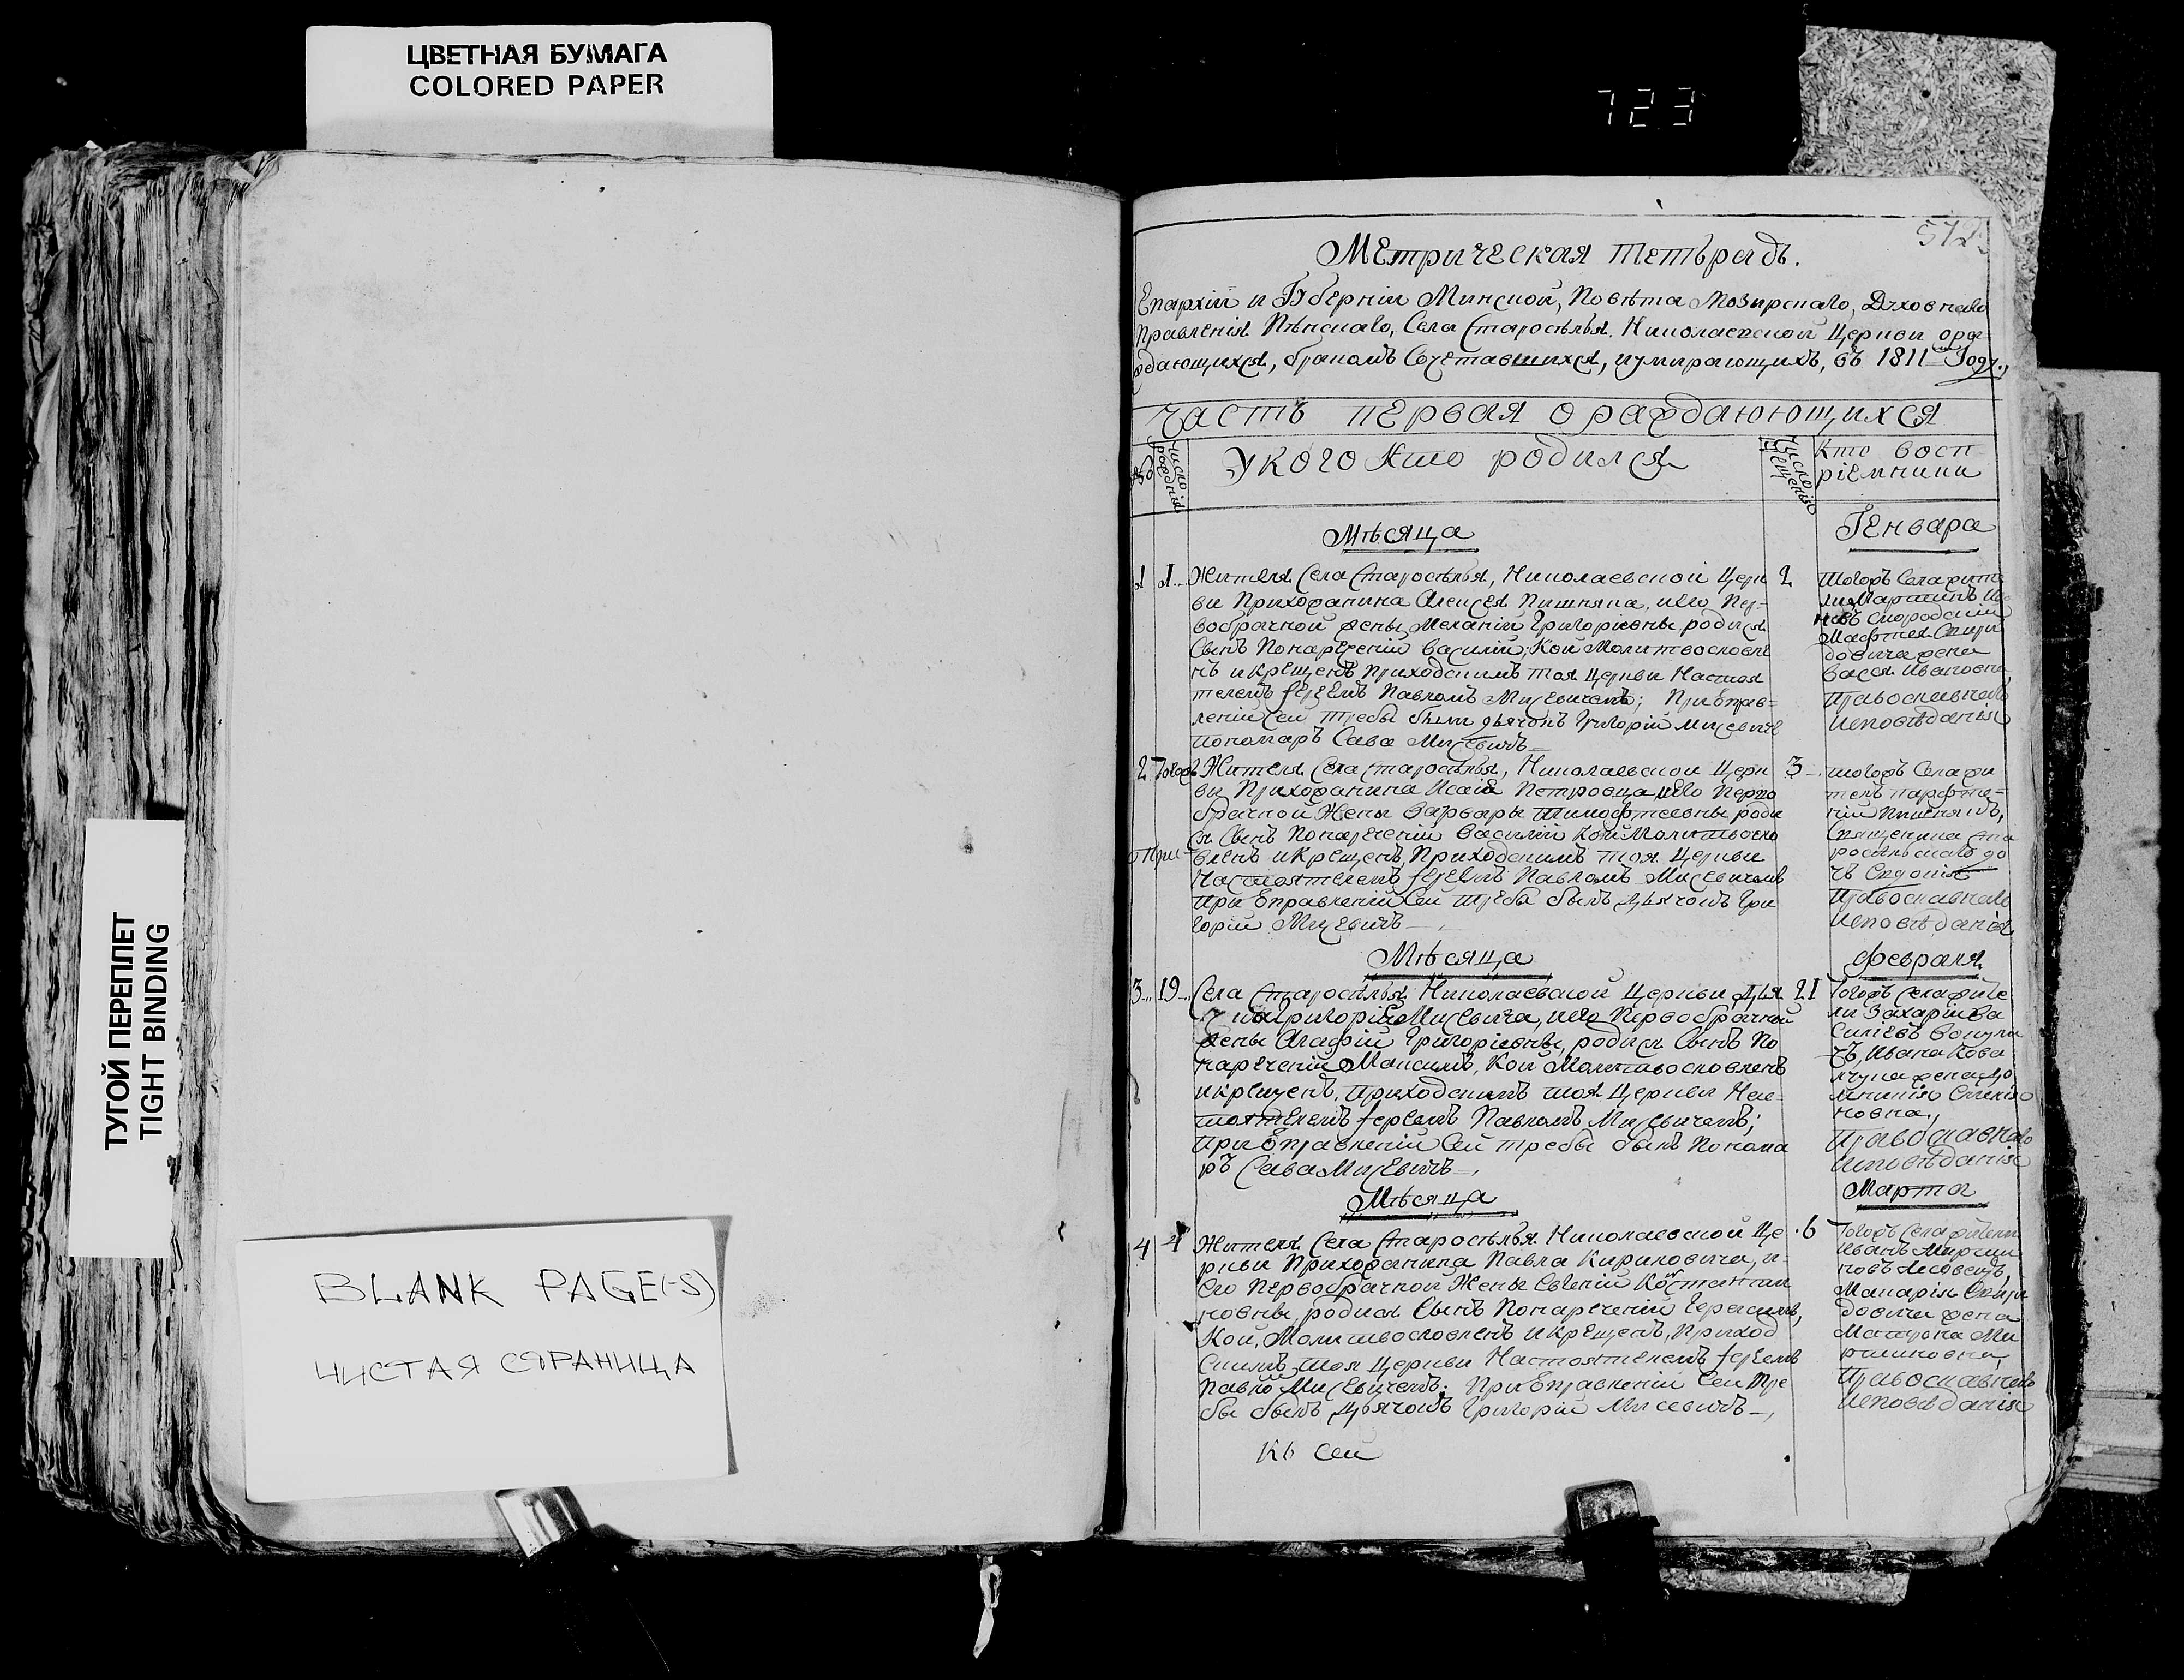 ЦВЕТНАЯ БУМАГА
COLORED PAPER
723
ТУГОЙ ПЕРЕПЛЕТ
TIGHT BINDING
BLANK PAGE(-S)
ЧИСТАЯ СТРАНИЦА
572
Метрическая тетьрадь.
Епархіи и Губерніи Минской, Повѣта Мозирскаго, Духовнаго
Правленія Пѣнскаго, Села Старосѣлья Николаевской Церкви ора
ждающихся, бракомъ Сочетавшихся, иумирающихъ, въ 1811 Году.
Часть первая о раждаюющихся
№
Число рожднія
Укого Кто родился
Число Крещенія
Кто восп
ріемники
Мѣсяца
Генвара
1 1 Жителя Села Старосѣлья, Николаевской Церк
ви Прихожанина Алексея Пишняка, иего Пер-
вобрачной жены Меланіи Григоріевны родился
Сынъ Понаречении Василий, Кой Молитвословле
нъ и крещенъ Приходскимъ тоя Церкви Настоя
телемъ Іереемъ Павломъ Мисевичемъ; При Еправ-
леніи Сеи требы были дьячокъ Григорій Мисевичъ
пономаръ Сава Мисевичъ
2
Тогожъ Села жите
ли Мартинъ
Скородскій
Спири
довича жена
Васса Ивановна,
Православнаго
Исповѣданія
2 Тогожъ Жителя Села Старосѣлья, Николаевской Церк
ви Прихожанина Исаія Петровца, иего Перво
брачной Жены Варвары Тимофтеевны роди
ся Сынъ Понаречении Василий Кой Молитвосло
вленъ и Крещенъ Приходскимъ тоя Церкви
Настоятелемъ Іереемъ Павломъ Мисевичемъ
При Еправлении Сей требы былъ Дьячокъ Гри
горій Мисевичъ
3
тогожъ Села жи
тель парфте-
ній Пишнякъ,
Священика ста
росѣльскаго до
чъ Евдокія
Православнаго
Исповѣданія
Мѣсяца
Февраля
3 19 Села Старосѣлья Николаевской Церкви Дья
чка Григорія Мисевича, иего Первобрачной
жены Агафіи Григоріевны, родился Сынъ По
наречении Максимъ, Кой Молитвословленъ
и крещенъ, приходскимъ тоя Церкви Нас-
тоятелемъ Іереемъ Павломъ Мисевичемъ;
При Еправлении Сей требы былъ Понома
ръ Сава Мисевичъ
21
Тогожъ Села жите
ли Захарій Ва
силіевъ
Ивана Кова
лчука жена До
мникія
новна,
Православнаго
Исповѣданія
Мѣсяца
Марта
4 4 Жителя Села Старосѣлья Николаевской Це
ркви Прихожанина Павла Кириловича, и-
его Первобрачной Жены Евгеніи Констанътин
новны, родился Сынъ Понаречении Герасимъ,
Кой, Молитвословленъ и крещенъ, Приход
Скимъ тоя Церкви Настоятелемъ Іереемъ
Павломъ Мисевичемъ; При Еправлении Сеи тре
бы былъ Дьячокъ Григорій Мисевичъ
6
Тогожъ Села жители
Иванъ Мартин
новъ Лісовецъ,
Макарія Спири
довича жена
Матрона Ми
Православнаго
Исповѣданія
Къ Сеи